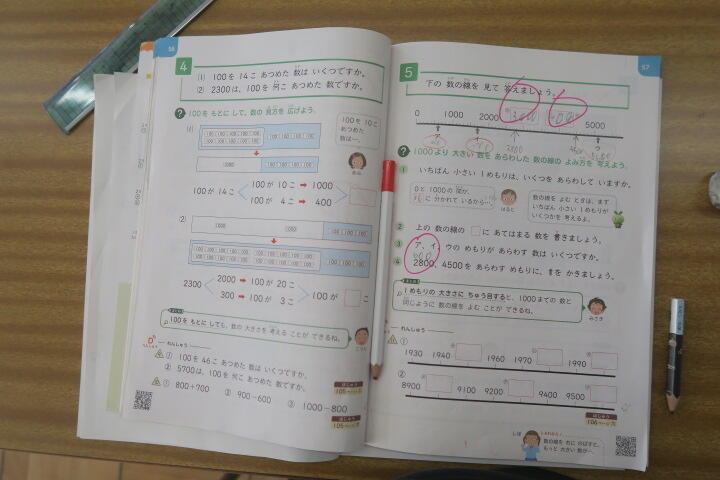 56
4
(1) 100を 14こ あつめた 数は いくつですか。
(2) 2300は、100を 何こ あつめた 数ですか。
? 100を もとに して、数の 見方を 広げよう。
(1)
100を 10こ
あつめた
数は…。
1000
100が 14こ
100が 10こ → 1000
100が 4こ → 400
(2)
1000 1000
2300
2000 → 100が 20こ
300 → 100が 3こ
100が □こ
100を もとに しても、数の 大きさを 考える ことが できるね。
れんしゅう
① 100を 46こ あつめた 数は いくつですか。
② 5700は、100を 何こ あつめた 数ですか。
① 800+700 ② 900-600 ③ 1000-800
57
5
下の 数の線を 見て 答えましょう。
0 1000 2000 3000 5000
? 1000より 大きい 数を あらわした 数の線の よみ方を 考えよう。
1 いちばん 小さい 1めもりは、いくつを あらわして いますか。
0と 1000の 間が、
に 分かれているから…。
はると
数の線を よむ ときは、まず
いちばん 小さい 1めもりが
いくつかを 考えるよ。
2 上の 数の線の □に あてはまる 数を 書きましょう。
3 ア、イ、ウの めもりが あらわす 数は いくつですか。
4 2800、4500を あらわす めもりに、↑を かきましょう。
1めもりの 大きさに ちゅう目すると、1000までの 数と
同じように 数の線を よむ ことが できるね。
みさき
れんしゅう
①
1930 1940 1960 1970 1990
②
8900 9100 9200 9400 9500
数の線を 右に のばすと、
もっと 大きい 数が…。